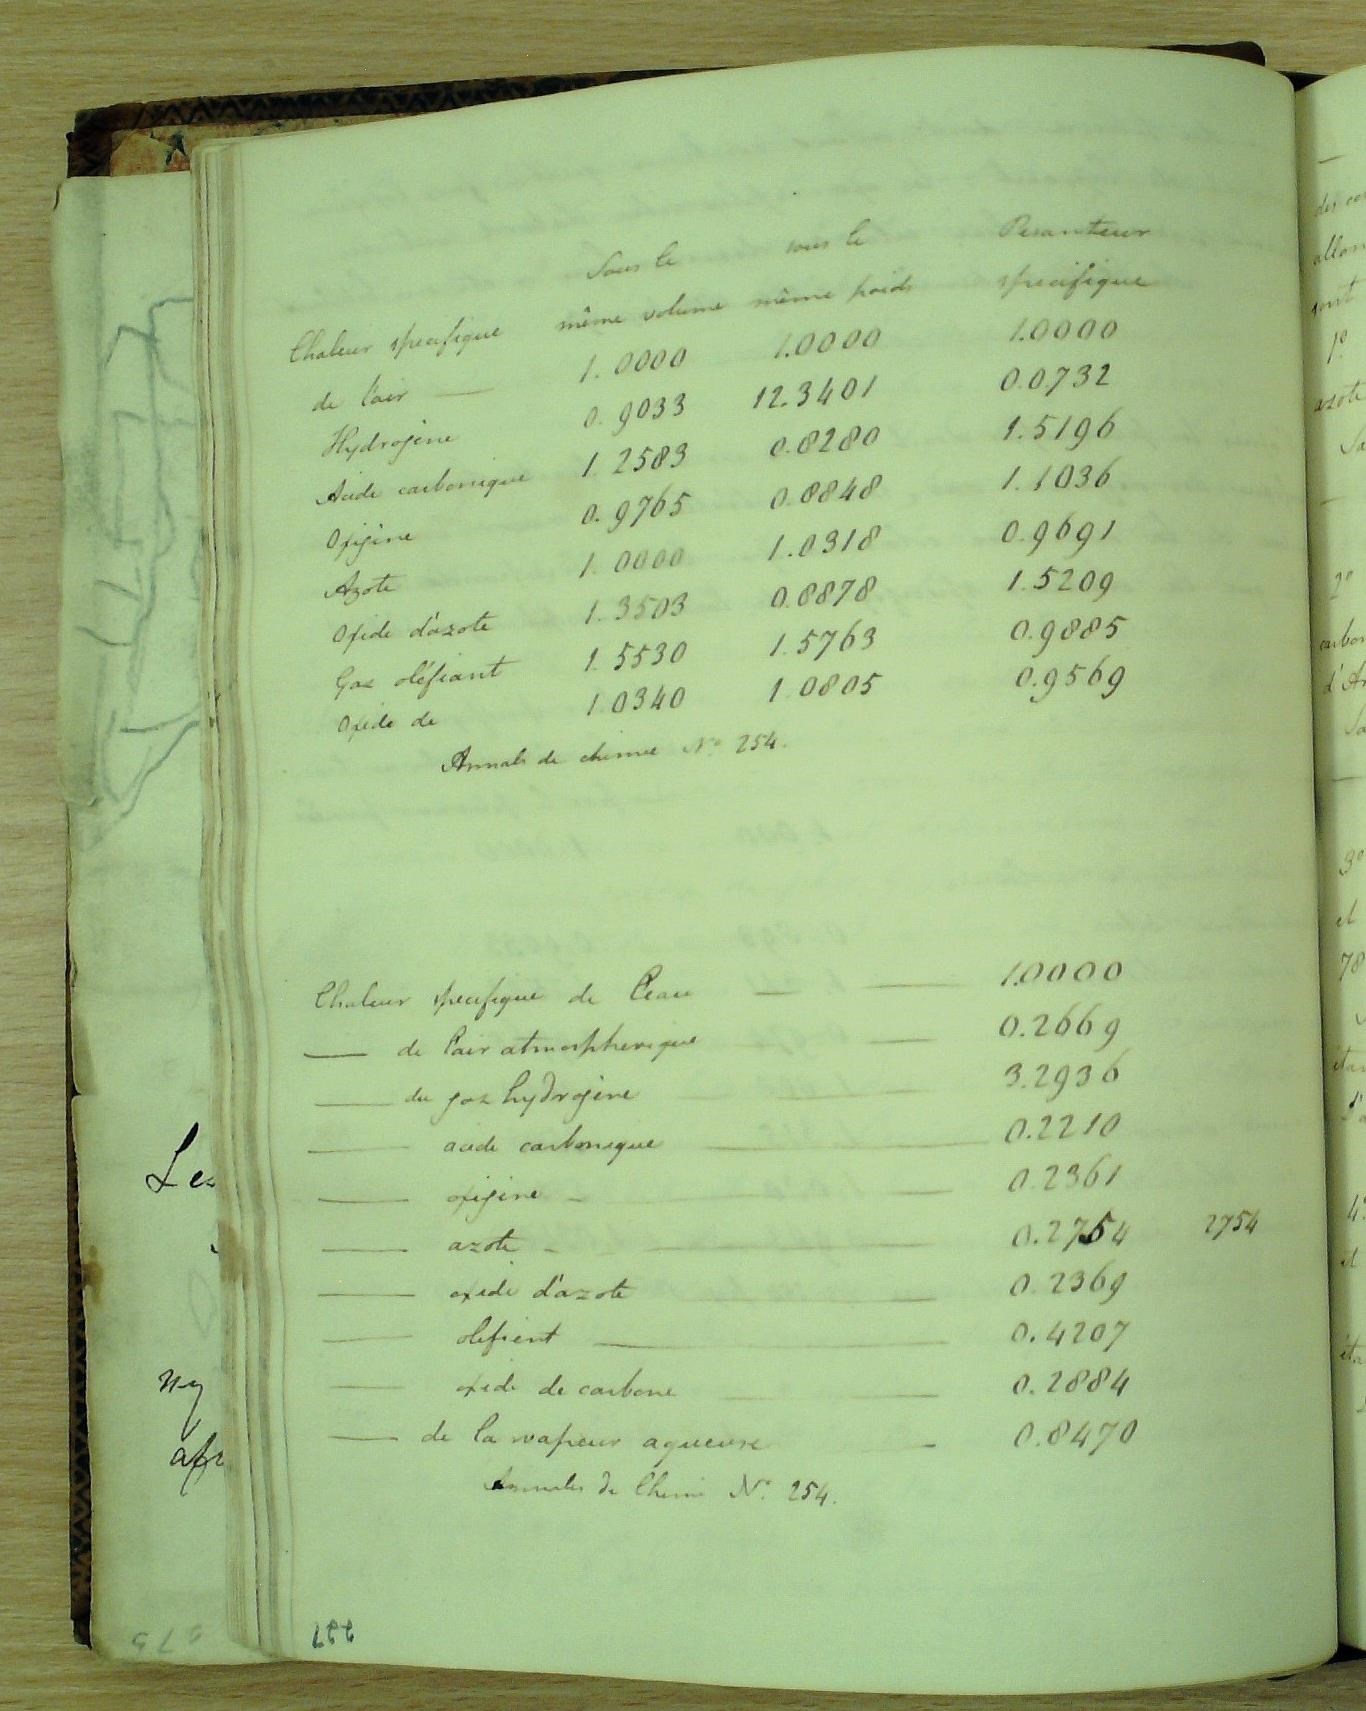 Sous le sous le Pesanteur
même volume même poids spécifique
Chaleur specifique
de l'air — 1.0000 1.0000 1.0000
Hydrogine 0.9033 12.3401 0.0732
Acide carbonique 1.2583 0.8280 1.5196
Oxigine 0.9765 0.8848 1.1036
Azote 1.0000 1.0318 0.9691
Oxide d'azote 1.3503 0.8878 1.5209
Gaz oléfiant 1.5530 1.5763 0.9885
Oxide de 1.0340 1.0805 0.9569
Annals de chimie No 254.
Chaleur specifique de l'eau — — 1.0000
— de l'air atmospherique — 0.2669
— du gaz hydrogine — 3.2936
— acide carbonique — 0.2210
— oxigine — 0.2361
— azote — 0.2754 2754
— oxide d'azote — 0.2369
— olefient — 0.4207
— oxide de carbone — 0.2884
— de la vapeur aqueuse — 0.8470
Annales de Chimi No. 254.
227
Les
ny
275
des
allon
sont
1o
azote
2o
carbon
3o
et
78